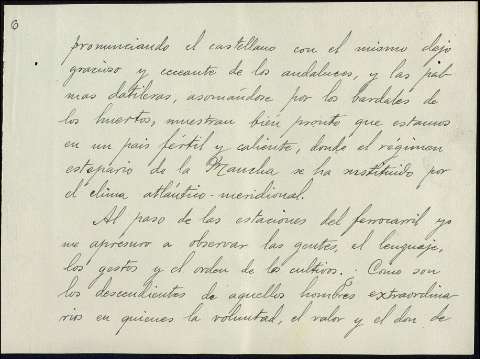 6
pronunciando el castellano con el mismo dejo
gracioso y ceceante de los andaluces, y las pal-
mas datileras, asomándose por los bardales de
los huertos, muestran bien pronto que estamos
en un país fértil y caliente, donde el régimen
estepario de la Mancha se ha sustituido por
el clima atlántico-meridional.
Al paso de las estaciones del ferrocarril yo
me apresuro a observar las gentes, el lenguaje,
los gestos y el orden de los cultivos. ¿Como son
los descendientes de aquellos hombres extraordina-
rios en quienes la voluntad, el valor y el don de